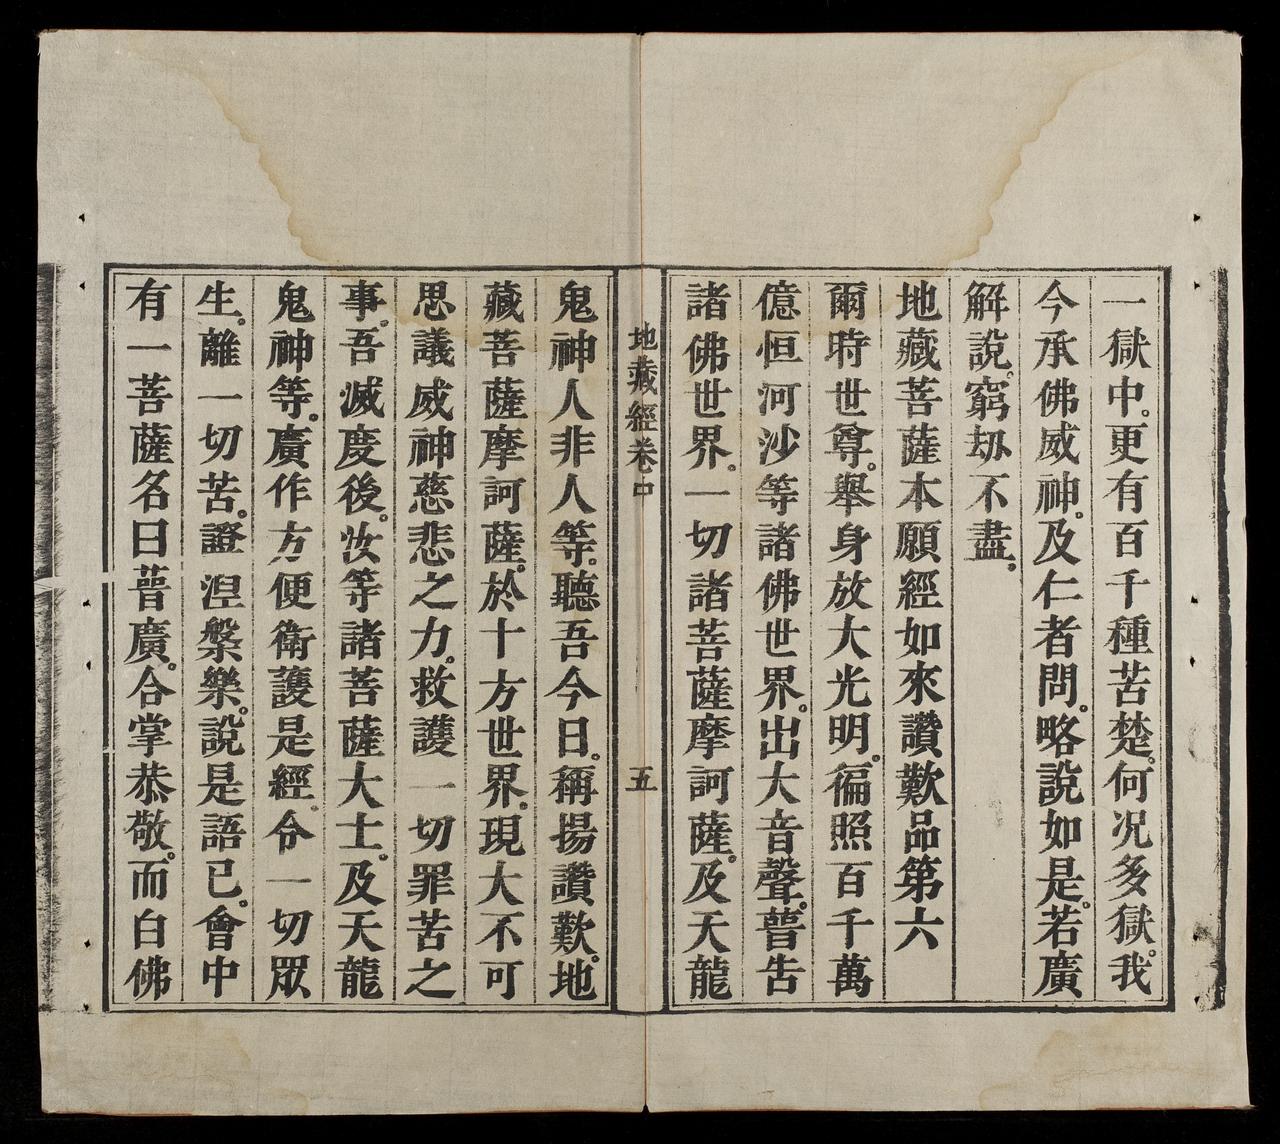 一獄中。更有百千種苦楚。何况多獄。我
今承佛威神。及仁者問。略說如是。若廣
解說。窮劫不盡。
地藏菩薩本願經如來讚歎品第六
爾時世尊。舉身放大光明。徧照百千萬
億恒河沙等諸佛世界。出大音聲。普告
諸佛世界。一切諸菩薩摩訶薩。及天龍
地藏經卷中
五
鬼神人非人等。聽吾今日。稱揚讚歎。地
藏菩薩摩訶薩。於十方世界。現大不可
思議威神慈悲之力。救護一切罪苦之
事。吾滅度後。汝等諸菩薩大士。及天龍
鬼神等。廣作方便衛護是經。令一切眾
生。離一切苦。證涅槃樂。說是語已。會中
有一菩薩名曰普廣。合掌恭敬。而白佛